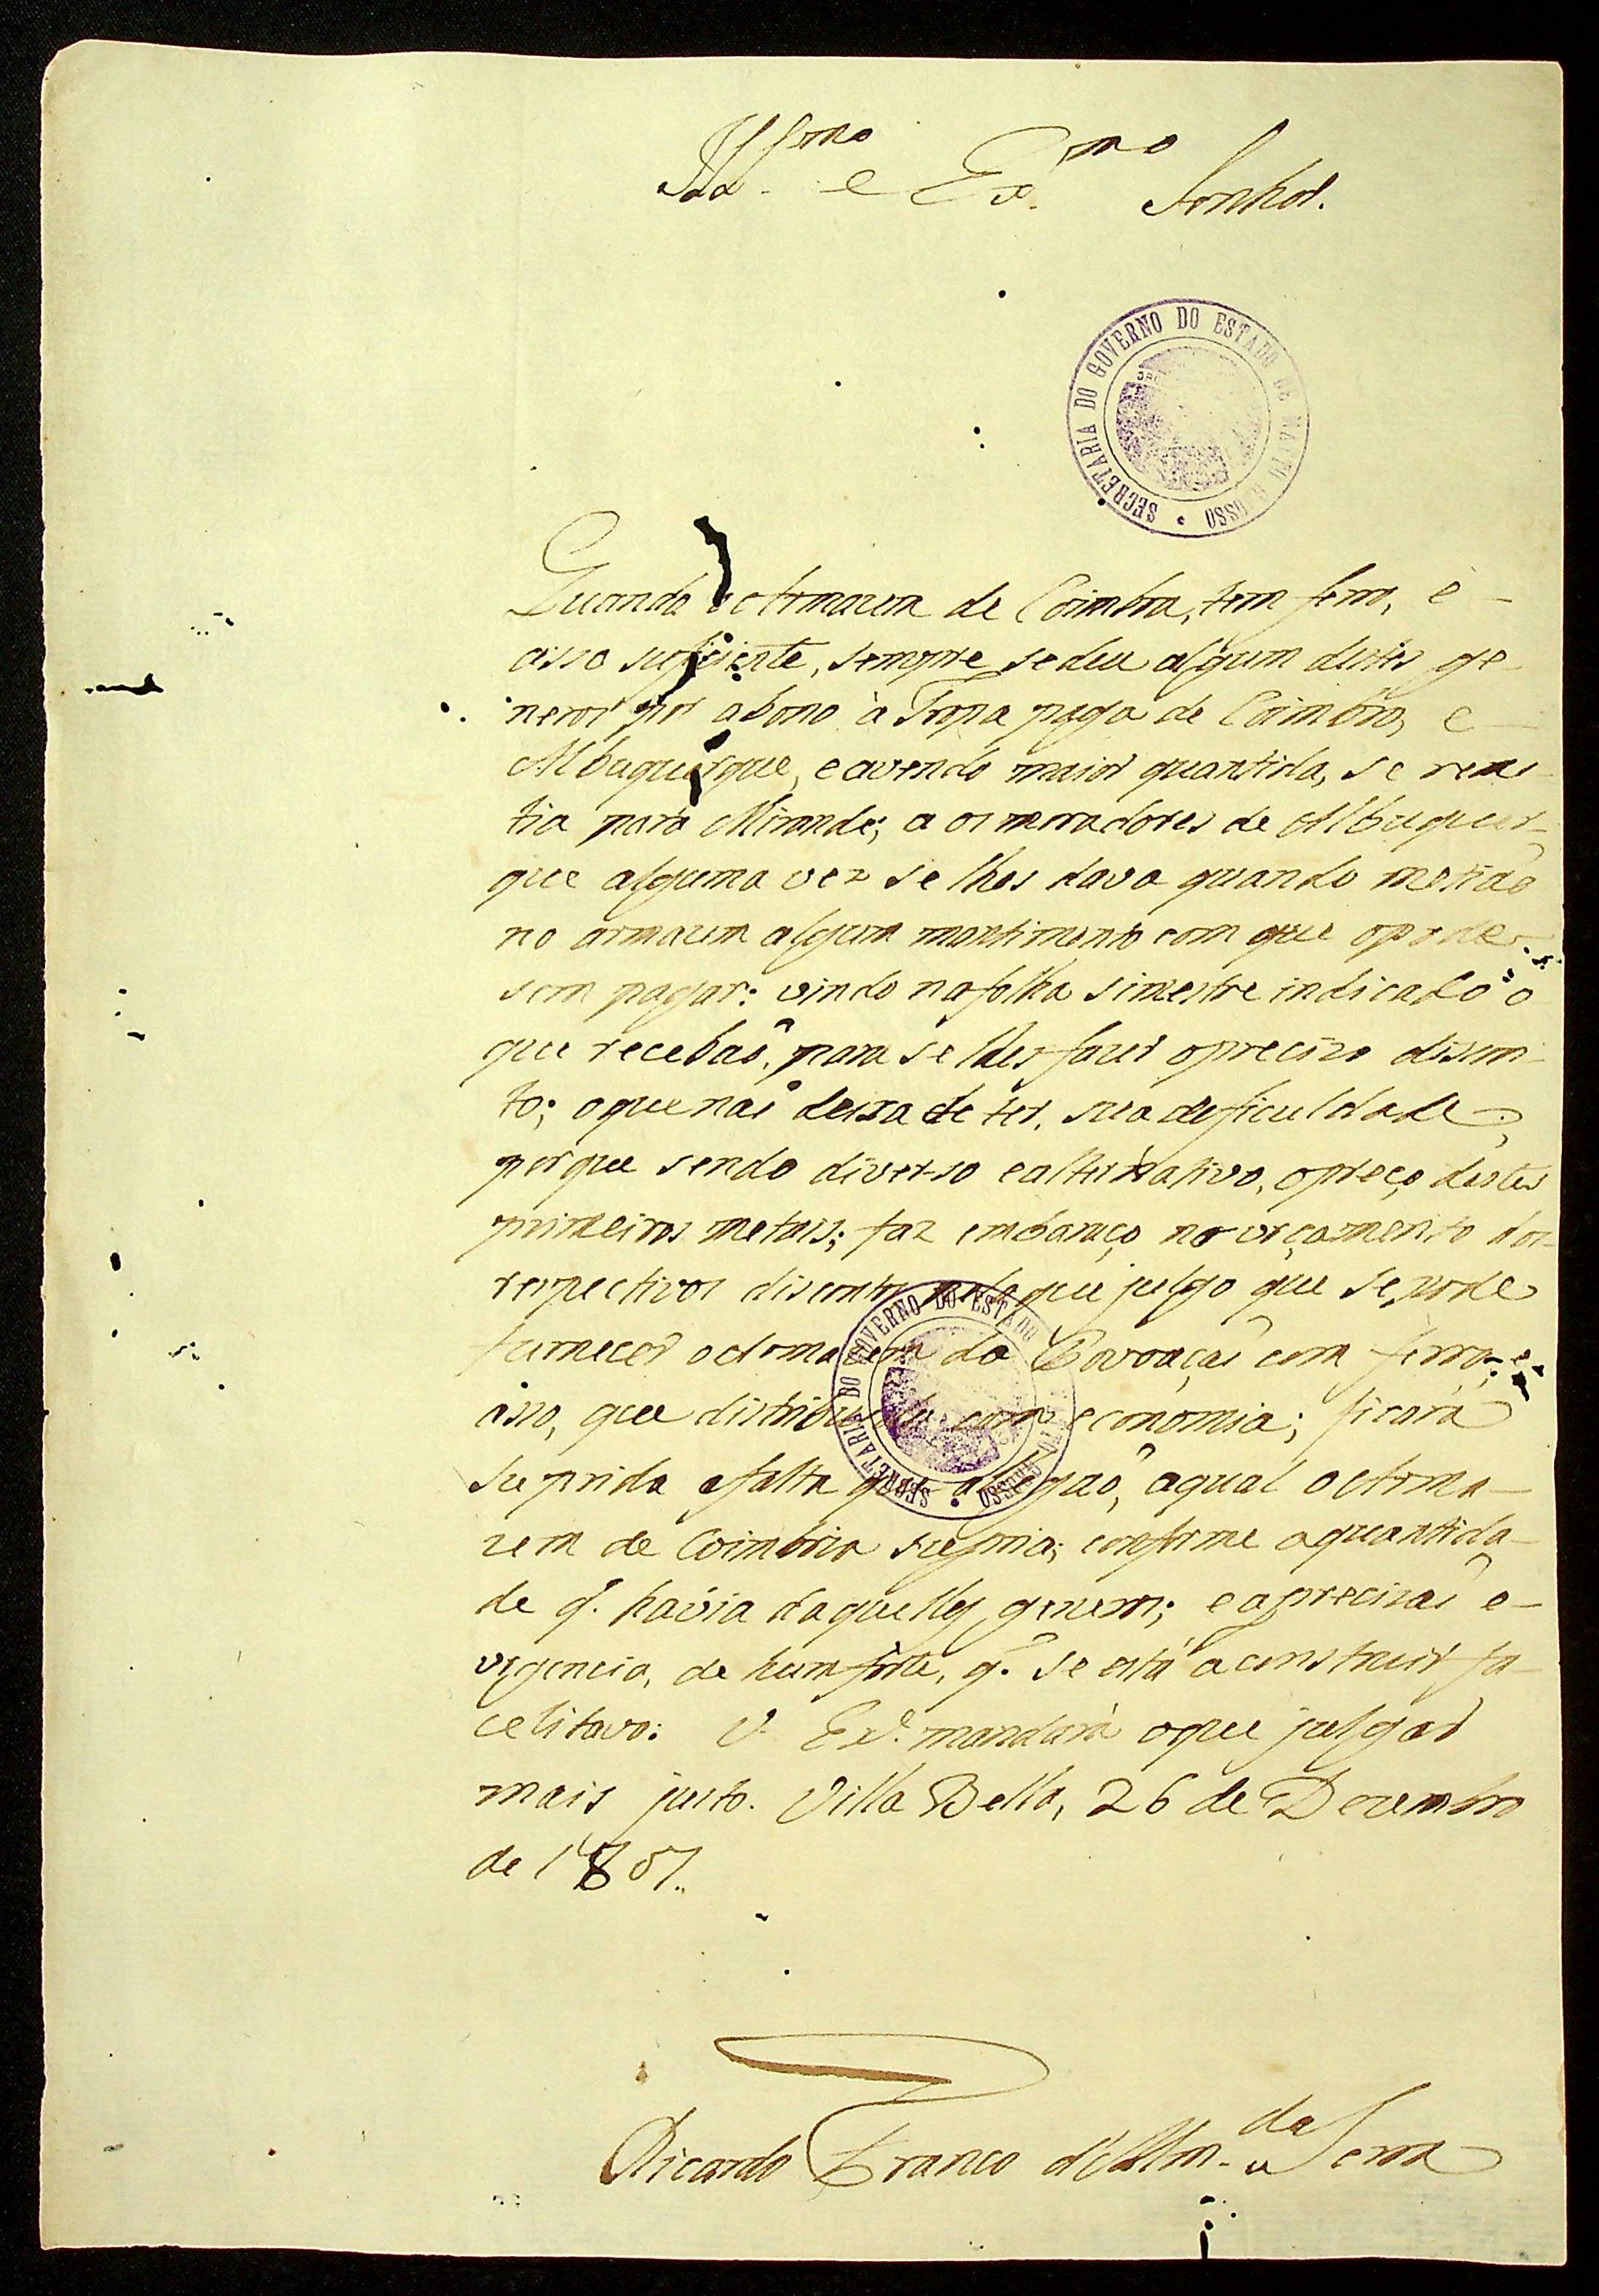 Ill.mo e Ex.mo Senhor.
SECRETARIA DO GOVERNO DO ESTADO DE MATTO GROSSO
Quando o Armazem de Coimbra, tem ferro, e
asso suficiente, sempre sedeu algum destes ge-
neros por abono à Tropa paga de Coimbra, e
Albuquerque, eavendo maior quantida, se reme-
tia para Miranda; a os moradores de Albuquer-
que alguma vez se lhes dava quando metiaõ
no armazem algum mantimento com que opodes-
sem pagar: vindo nafolha simestre indicado o
que recebiaõ, para se lhes fazer opreciso discon-
to; oquenaõ deixa de ter, sua deficuldade,
porque sendo diverso ealternativo, opreço destes
primeiros metais; faz embaraço no orçamento dos
respectivos discontos pelo que julgo que se pode
fornecer oArmazem da Povoaçaõ com ferro, e
asso, que distribuido com economia; ficará
suprida afalta que alegaõ, aqual oArma-
zem de Coimbra supria; conforme aquantida-
de q. havia daquelles generos; eaprecizaõ e
urgencia, de hum forte, q. se está aconstruir fa-
celitava: V. Ex.ª mandará oque julgar
mais justo. Villa Bella, 26 de Dezembro
de 1801.
SECRETARIA DO GOVERNO DO ESTADO DE MATTO GROSSO
Ricardo Franco d'Alm.da Serra